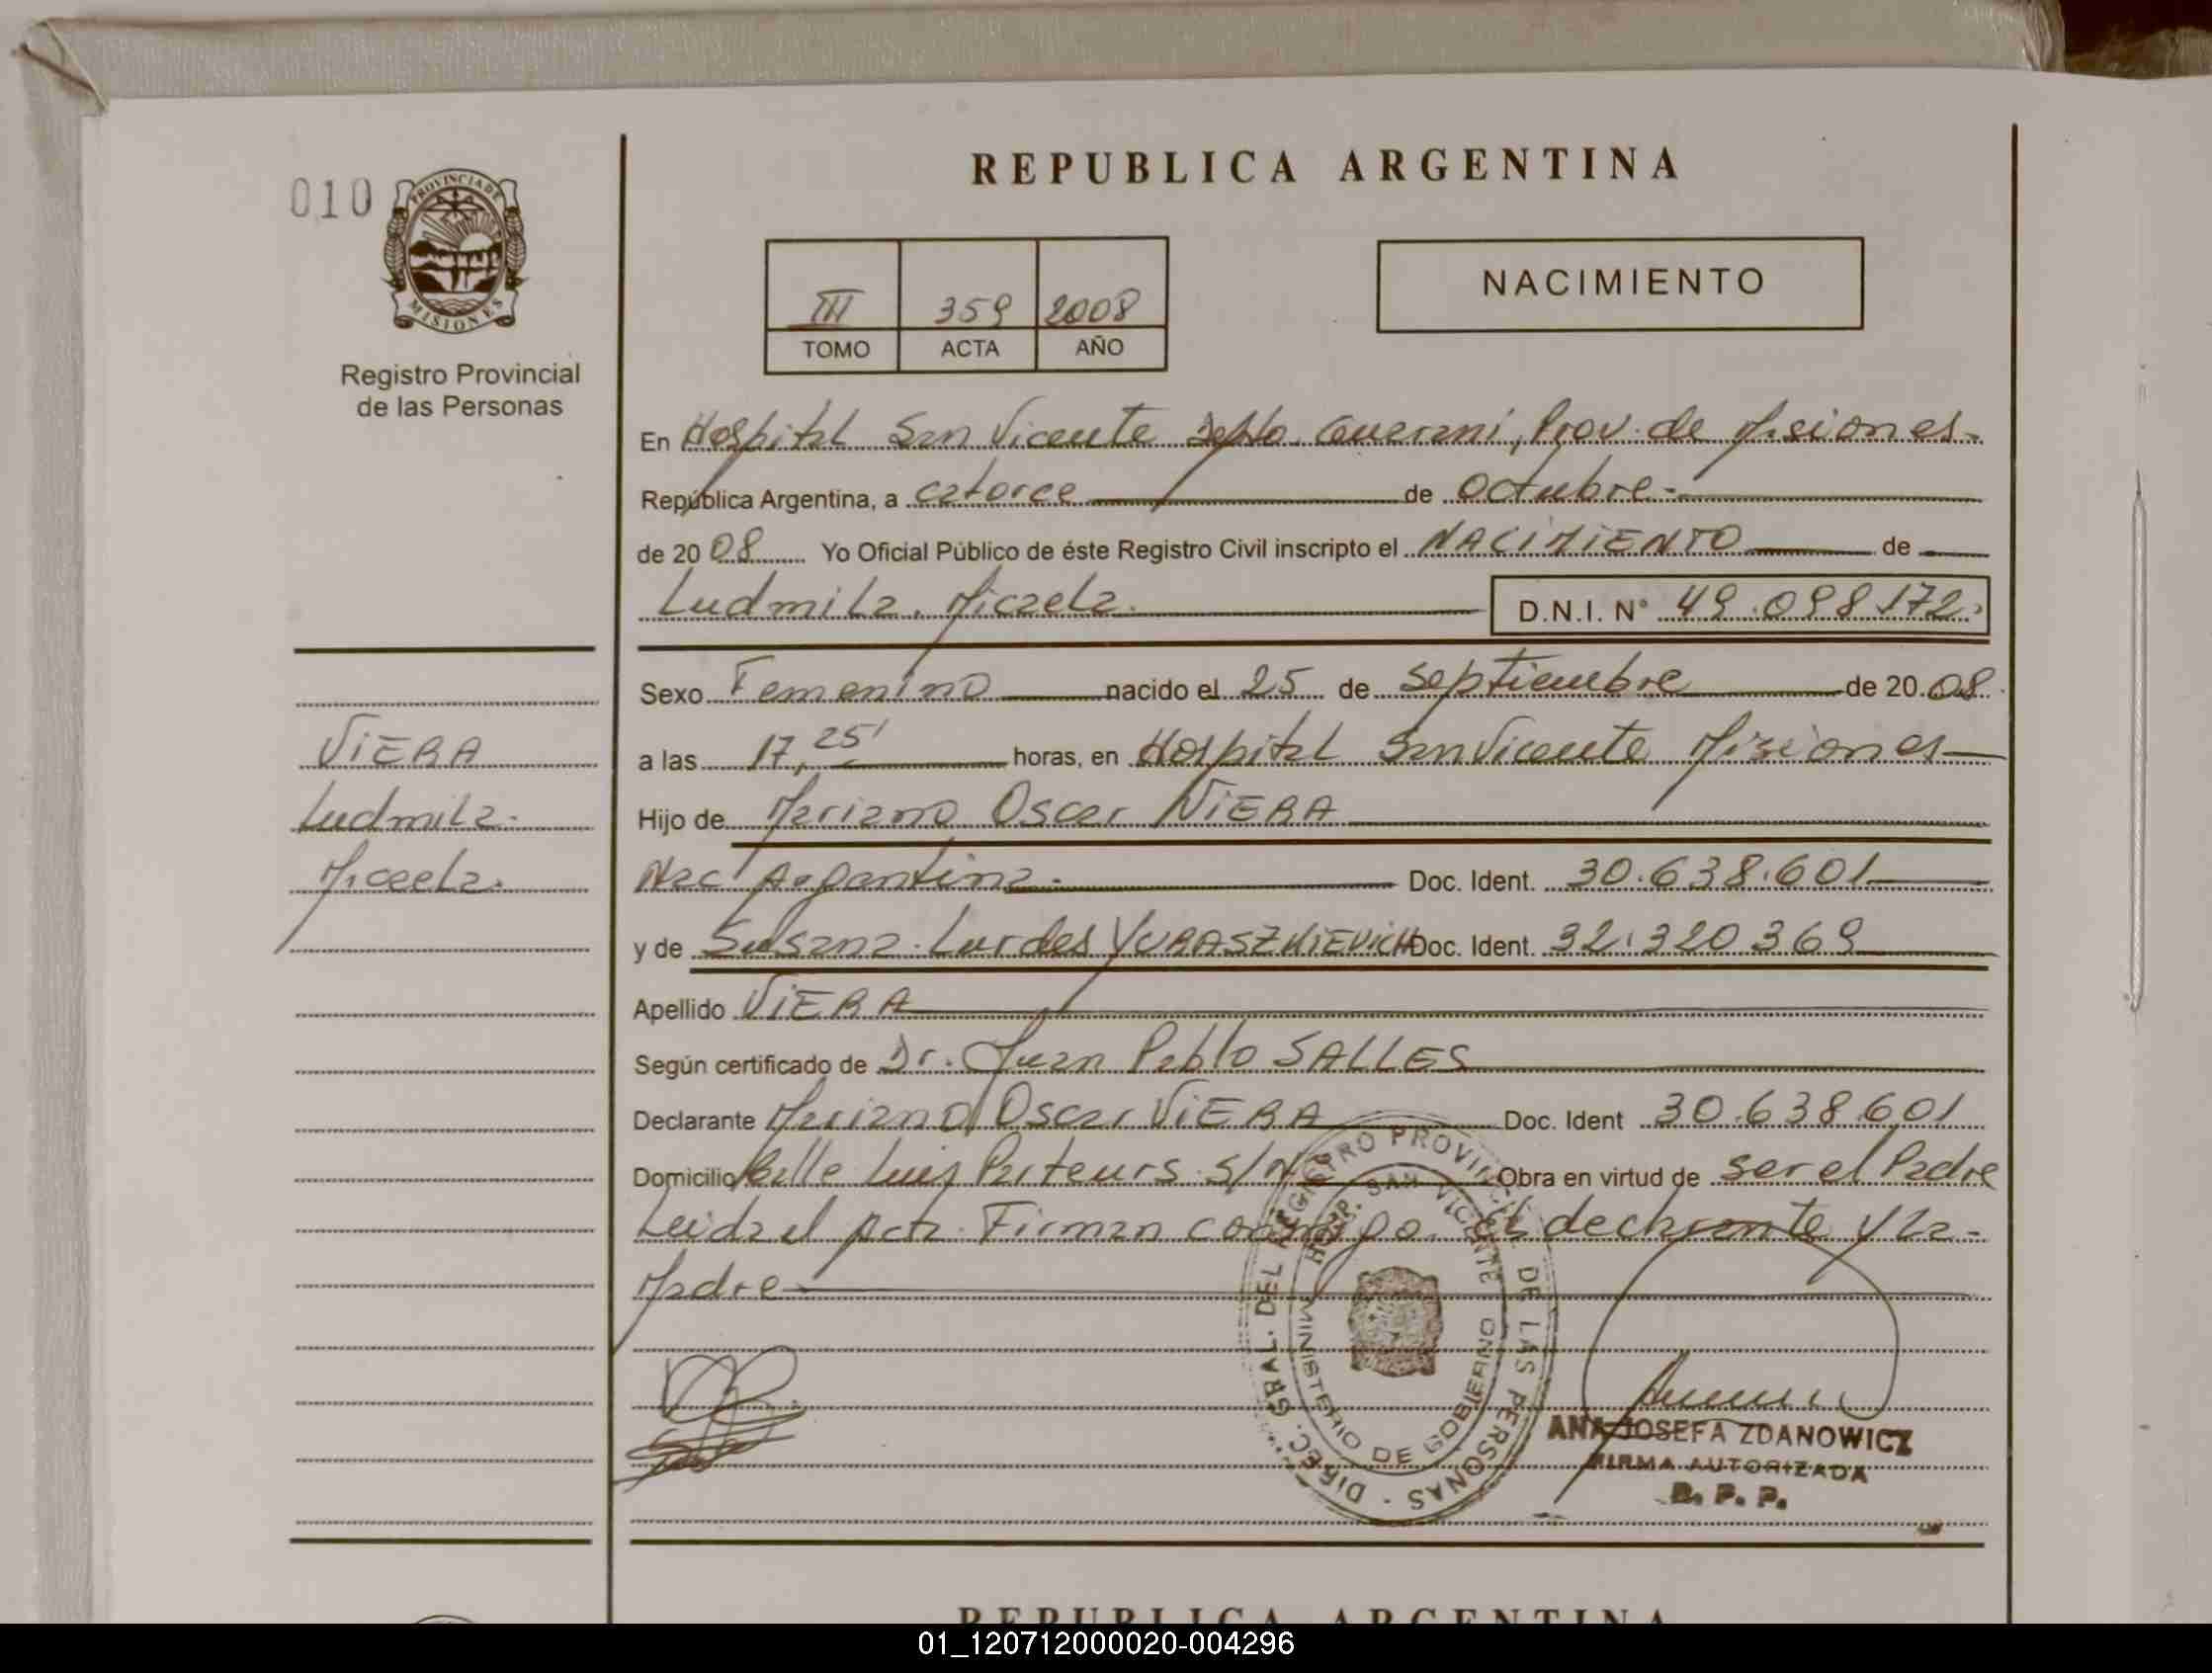 010
PROVINCIA DE
MISIONES
Registro Provincial
de las Personas
REPUBLICA ARGENTINA
III 359 2008
TOMO ACTA AÑO
NACIMIENTO
En Hospital San Vicente Depto. Guarani, Prov. de Misiones-
República Argentina, a catorce de Octubre.-
de 20 08 Yo Oficial Público de éste Registro Civil inscripto el NACIMIENTO de
Ludmila. Micaela. D.N.I. N° 49.098.172.
Sexo Femenino nacido el 25 de septiembre de 20 08.
a las 17,25' horas, en Hospital San Vicente Misiones
Hijo de Mariano Oscar VIERA
Nac. Argentina.- Doc. Ident. 30.638.601
y de Susana. Lurdes YURASZKIEVICH Doc. Ident. 32.320.369
Apellido VIERA
Según certificado de Dr. Juan Pablo SALLES
Declarante Mariano Oscar VIERA Doc. Ident 30.638.601
Domicilio Calle Luis Pasteurs s/n Obra en virtud de ser el Padre
Leida el Acta. Firman conmigo. el declarante y la-
Madre
VIERA
Ludmila.
Micaela.
DIREC. GRAL. DEL REGISTRO PROVINCIAL DE LAS PERSONAS
HOSP. SAN VICENTE
MINISTERIO DE GOBIERNO
ANA JOSEFA ZDANOWICZ
FIRMA AUTORIZADA
R. P. P.
REPUBLICA ARGENTINA
01_120712000020-004296